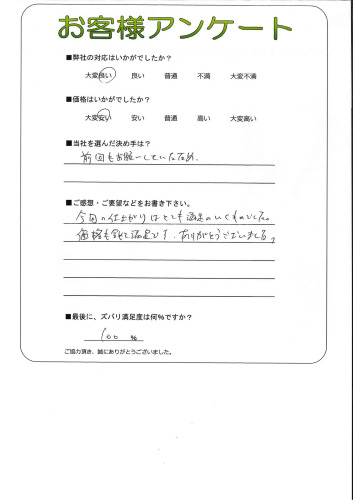 お客様アンケート
■弊社の対応はいかがでしたか？
大変良い 良い 普通 不満 大変不満
■価格はいかがでしたか？
大変安い 安い 普通 高い 大変高い
■当社を選んだ決め手は？
前回もお願いしていたため。
■ご感想・ご要望などをお書き下さい。
今回の仕上がりはとても満足のいくものでした。
価格も含めて満足です。ありがとうございました。
■最後に、ズバリ満足度は何％ですか？
100 %
ご協力頂き、誠にありがとうございました。